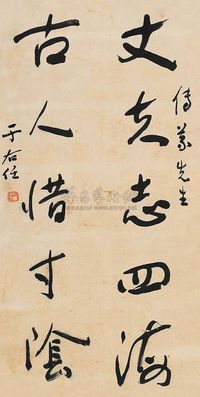 傳篆先生
丈夫志四海
古人惜寸陰
于右任